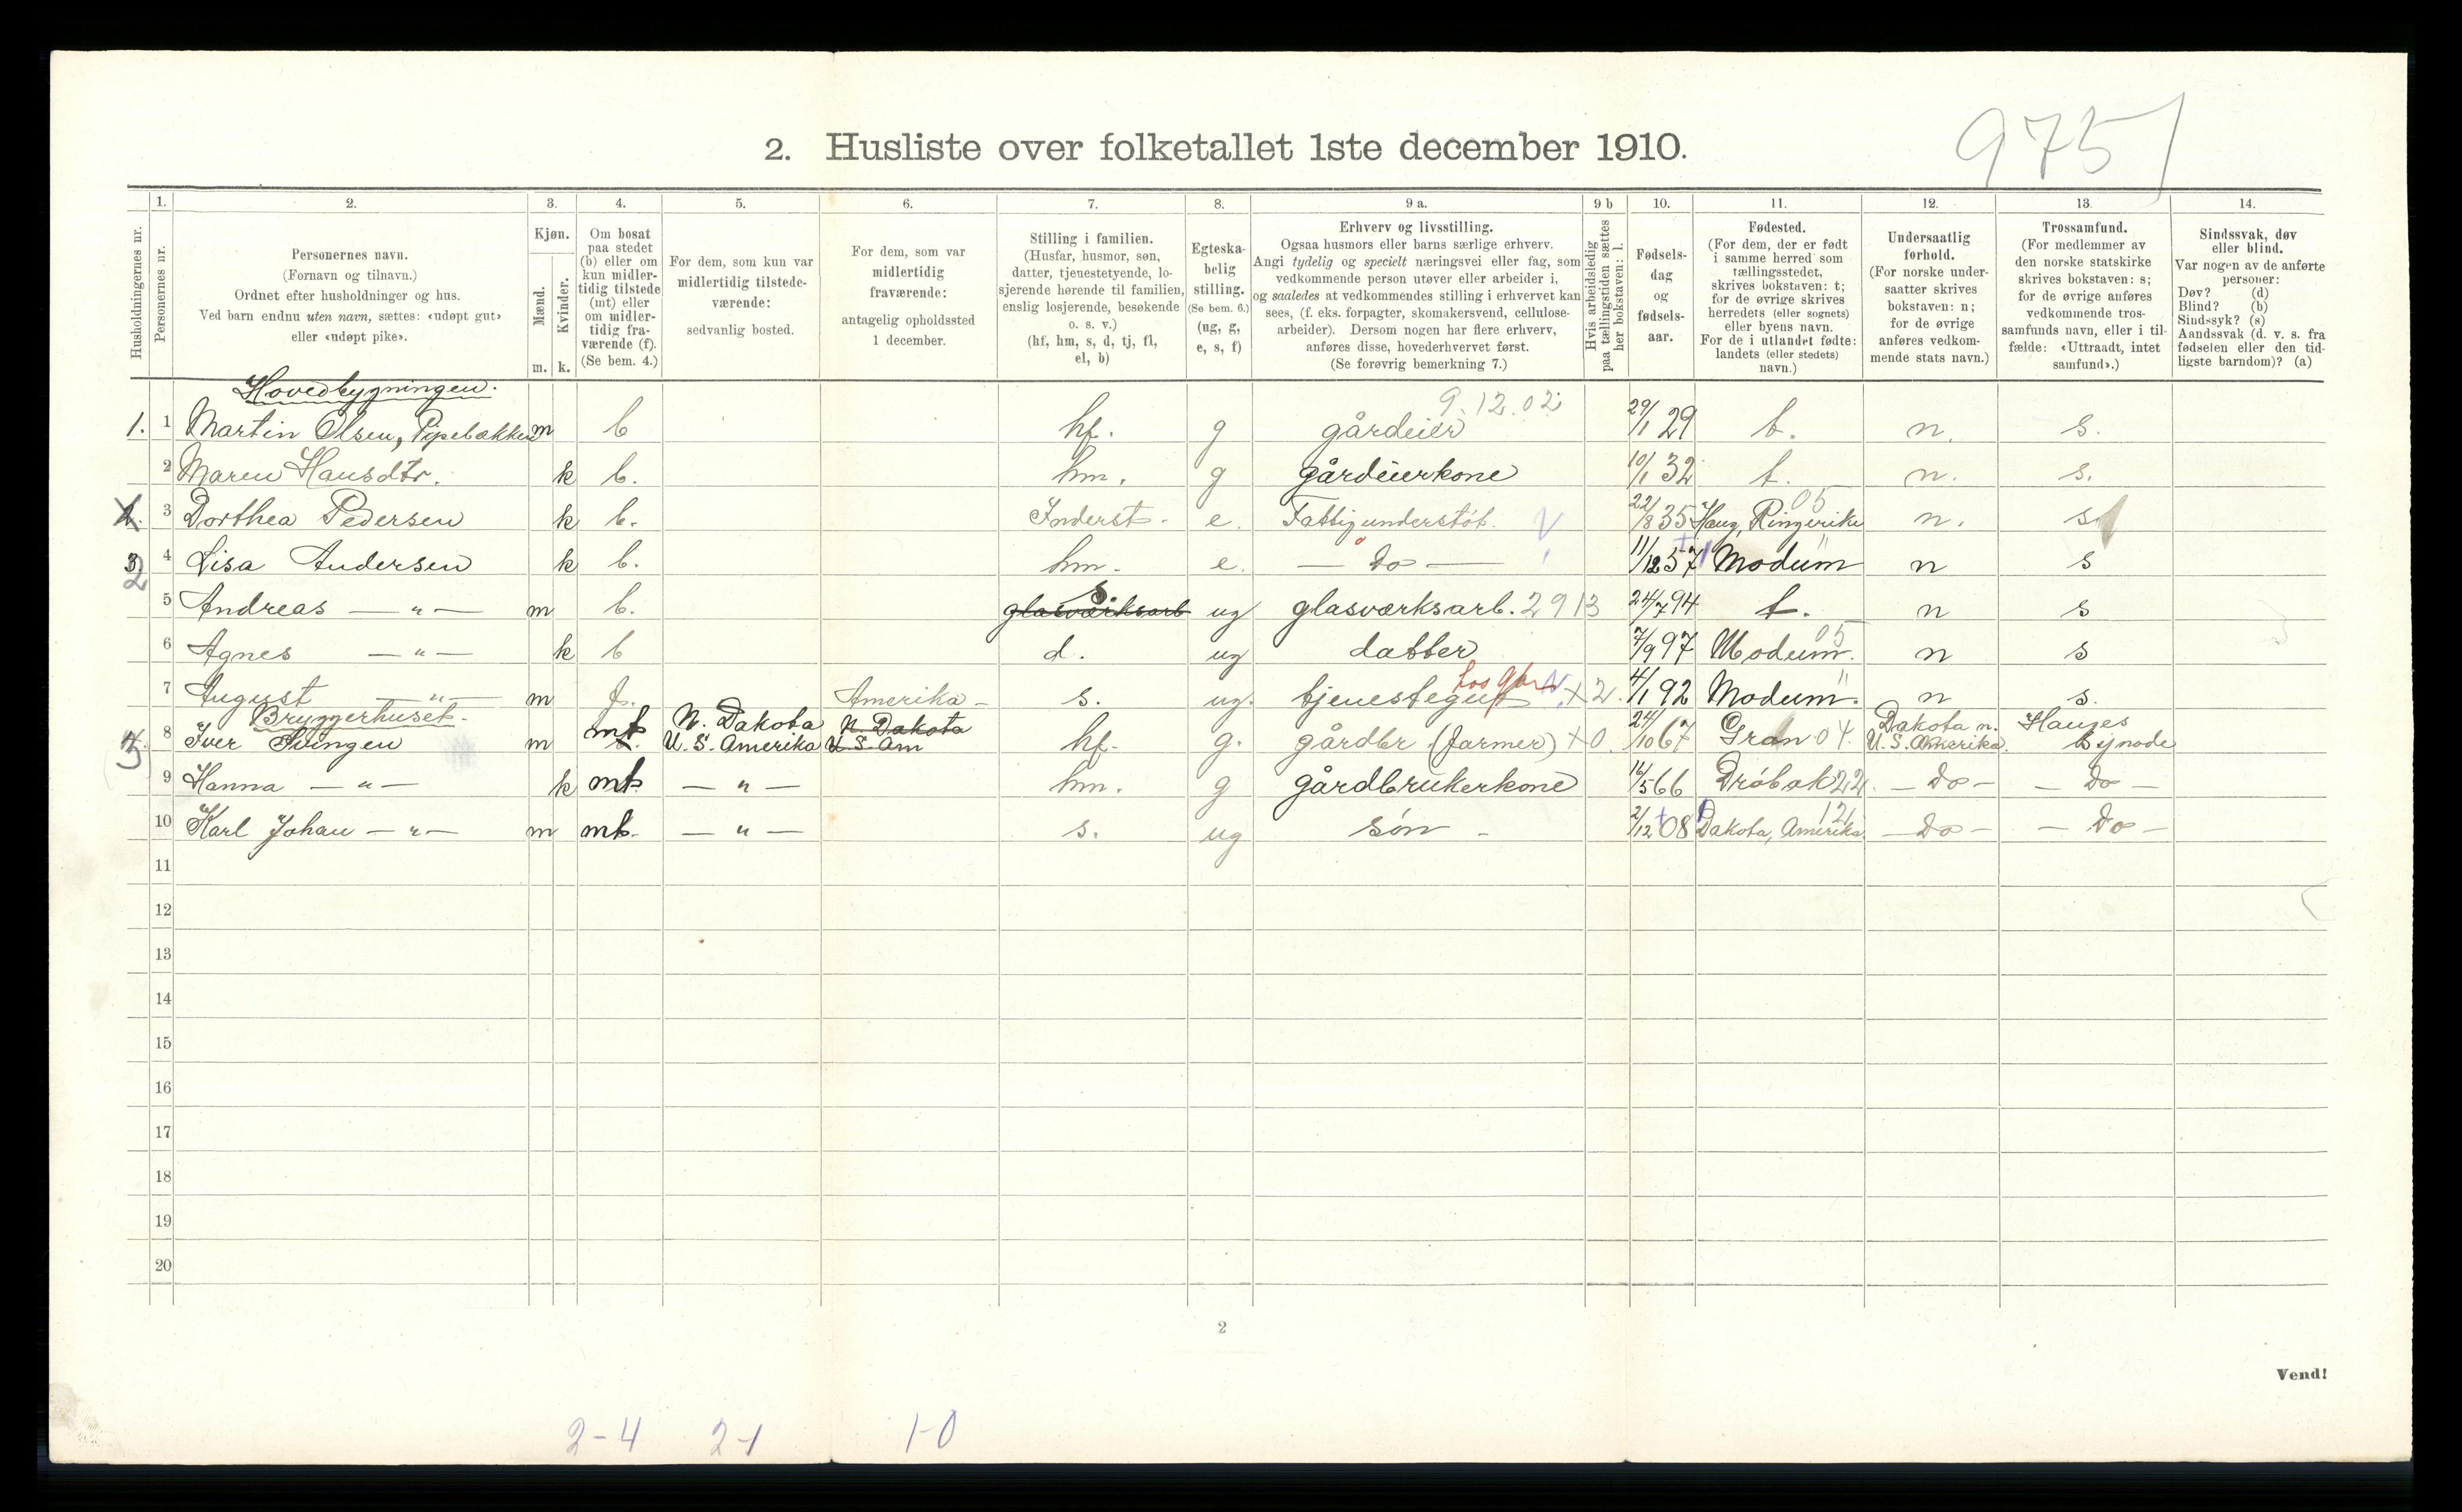 975
2. Husliste over folketallet 1ste december 1910.
Husholdningernes nr.
1. Personernes nr.
2. Personernes navn.
(Fornavn og tilnavn.)
Ordnet efter husholdninger og hus.
Ved barn endnu uten navn, sættes: «udøpt gut»
eller «udøpt pike».
3. Kjøn.
Mænd. Kvinder.
m. k.
4. Om bosat
paa stedet
(b) eller om
kun midler-
tidig tilstede
(mt) eller
om midler-
tidig fra-
værende (f).
(Se bem. 4.)
5. For dem, som kun var
midlertidig tilstede-
værende:
sedvanlig bosted.
6. For dem, som var
midlertidig
fraværende:
antagelig opholdssted
1 december.
7. Stilling i familien.
(Husfar, husmor, søn,
datter, tjenestetyende, lo-
sjerende hørende til familien,
enslig losjerende, besøkende
o. s. v.)
(hf, hm, s, d, tj, fl,
el, b)
8. Egteska-
belig
stilling.
(Se bem. 6.)
(ug, g,
e, s, f)
9 a. Erhverv og livsstilling.
Ogsaa husmors eller barns særlige erhverv.
Angi tydelig og specielt næringsvei eller fag, som
vedkommende person utøver eller arbeider i,
og saaledes at vedkommendes stilling i erhvervet kan
sees, (f. eks. forpagter, skomakersvend, cellulose-
arbeider). Dersom nogen har flere erhverv,
anføres disse, hovederhvervet først.
(Se forøvrig bemerkning 7.)
9 b Hvis arbeidsledig
paa tællingstiden sættes
her bokstaven: l.
10. Fødsels-
dag
og
fødsels-
aar.
11. Fødested.
(For dem, der er født
i samme herred som
tællingsstedet,
skrives bokstaven: t;
for de øvrige skrives
herredets (eller sognets)
eller byens navn.
For de i utlandet fødte:
landets (eller stedets)
navn.)
12. Undersaatlig
forhold.
(For norske under-
saatter skrives
bokstaven: n;
for de øvrige
anføres vedkom-
mende stats navn.)
13. Trossamfund.
(For medlemmer av
den norske statskirke
skrives bokstaven: s;
for de øvrige anføres
vedkommende tros-
samfunds navn, eller i til-
fælde: «Uttraadt, intet
samfund».)
14. Sindssvak, døv
eller blind.
Var nogen av de anførte
personer:
Døv? (d)
Blind? (b)
Sindssyk? (s)
Aandssvak (d. v. s. fra
fødselen eller den tid-
ligste barndom)? (a)
Hovedbygningen.
9.12.02
1. 1 Martin Olsen, Pipebakken m b hf. g gårdeier 29/1 29 t. n. s.
2 Maren Hansdtr. k b. hm. g gårdeierkone 10/1 32 t. n. s.
2. 3 Dorthea Pedersen k b. Inderst. e. Fattigunderstöt. 22/8 35 Haug, Ringerike 05 n. s
3 2 4 Lisa Andersen k b. hm. e. — Do — 11/12 57 Modum " n s
5 Andreas — " — m b. glasværksarb s. ug glasværksarb. 2913 24/7 94 t. n s
6 Agnes — " — k b d. ug datter 7/9 97 Modum. 05 n s
7 August — " — m f. Amerika - s. ug. tjenestegut hos gbr x 2. 4/1 92 Modum " n s.
Bryggerhuset.
4. 3 8 Iver Svingen m mt N. Dakota U. S. Amerika N. Dakota U. S. Am hf. g. gårdbr (farmer) x 0 24/10 67 Gran 04. Dakota n. U. S. Amerika. Hauges Synode
9 Hanna — " — k mt — " — hm. g gårdbrukerkone 16/5 66 Dröbak 22. — Do — — Do —
10 Karl Johan — " — m mt. — " — s. ug sön - 2/12 08 Dakota, Amerika. 121 — Do — — Do —
11
12
13
14
15
16
17
18
19
20
2
Vend!
2-4 2-1 1-0